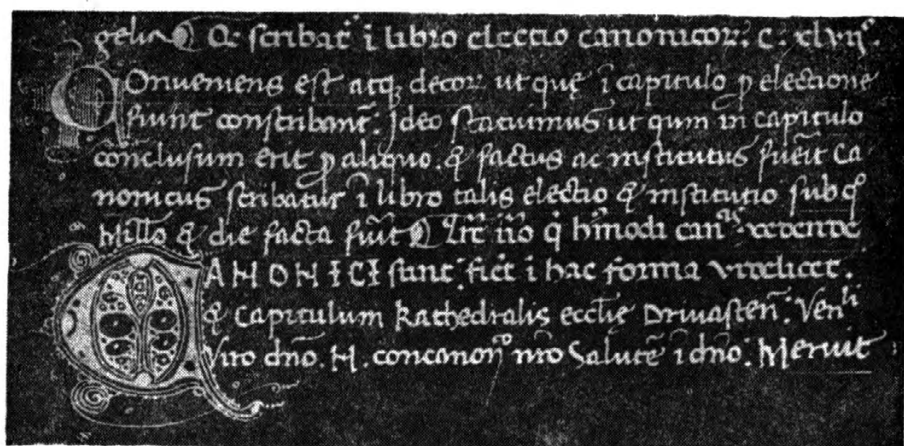 gelia Qꝛ scribat̃ ĩ libro electio canonicoꝝ. C. xlvij.
Conueniens est atqꝫ decoꝝ ut quę ĩ capitulo ꝑ electione
fiunt conscribant̃. Ideo statuimus ut qum in capitulo
cõnclusum erit ꝑ aliquo. q̃ factus ac institutus fueřit ca
nonicus scribatur ĩ libro talis electio & institutio sub q̃
Millo & die facta fuĩt q̃ hm̃odi
CANONICI sunt. fiet ĩ hac forma videlicet.
& Capitulum kathedralis ecclię Drivasteñ. Venˡⁱ
Viro dño. N. concanoñ nr̃o Salutẽ ĩ dño. Meruit